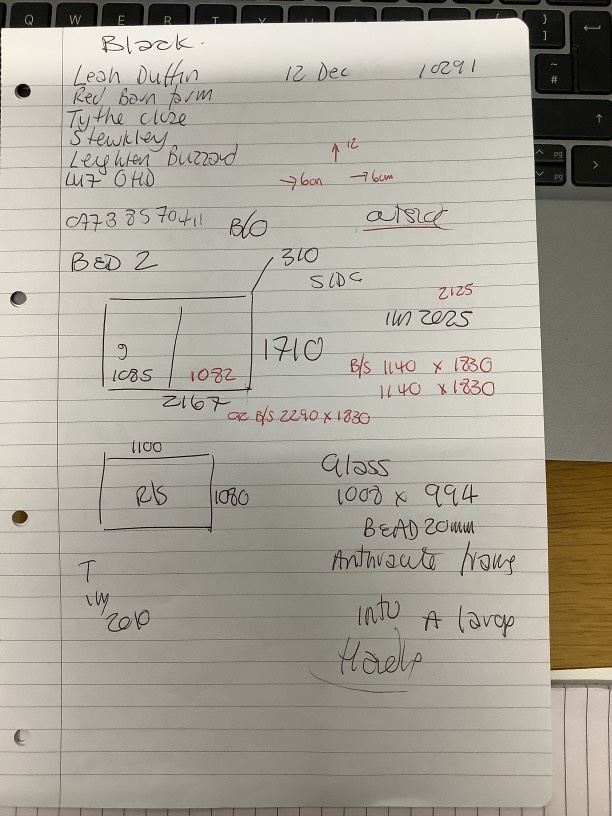 Black.
Leah Duffin 12 Dec 10291
Red Barn farm
Tythe close
Stewkley
Leighton Buzzard
LU7 0HD
↑ 12
→ 6cm → 6cm
B/O
BED 2
310
SIDE
2125
1710
9
1085 1082
B/S 1140 x 1830
1140 x 1830
2167
OR B/S 2290 x 1830
1100
Glass
R/S 1080
1008 x 994
BEAD 20mm
T
Into A large